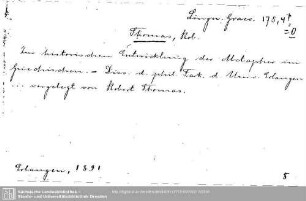 Lingu. Graec. 175, 4⁰
=0
Thomas, Rob.
Zur historischen Entwicklung der Metapher im
Griechischen. - Diss. d. phil. Fak. d. Univ. Erlangen
... vorgelegt von Robert Thomas.
Erlangen, 1891
8
Sächsische Landesbibliothek -
Staats- und Universitätsbibliothek Dresden